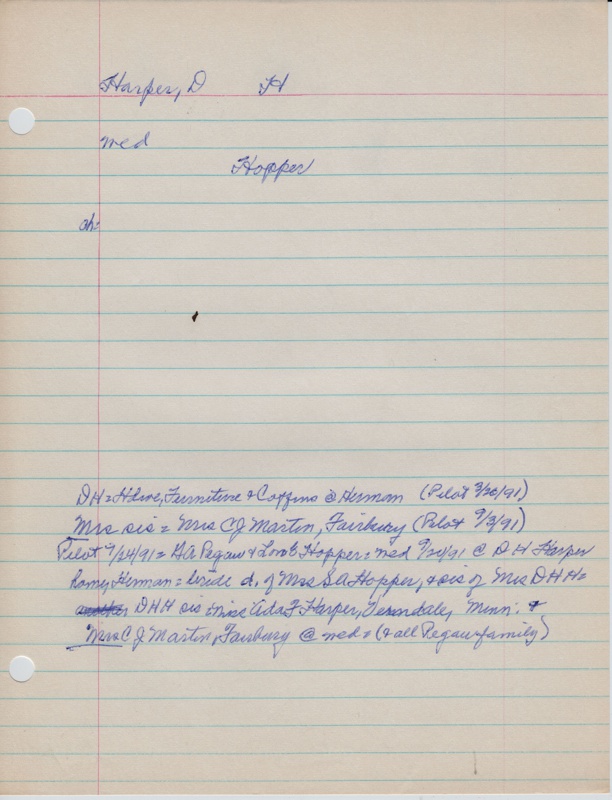 Harper, D H
med
Hopper
ch=
DH = Hdwe, Furniture & Coffins @ Herman (Pilot 3/20/91)
Mrs sis = Mrs CJ Martin, Fairbury (Pilot 9/3/91)
Pilot 9/24/91 = GA Pegau & Hopper = wed 9/20/91 @ DH Harper
home, Herman = bride d. of Mrs SA Hopper, & sis of Mrs DHH =
another DHH sis = Miss Ada F Harper, Verndale, Minn. &
Mrs CJ Martin, Fairbury @ wed = (& all Pegau family)